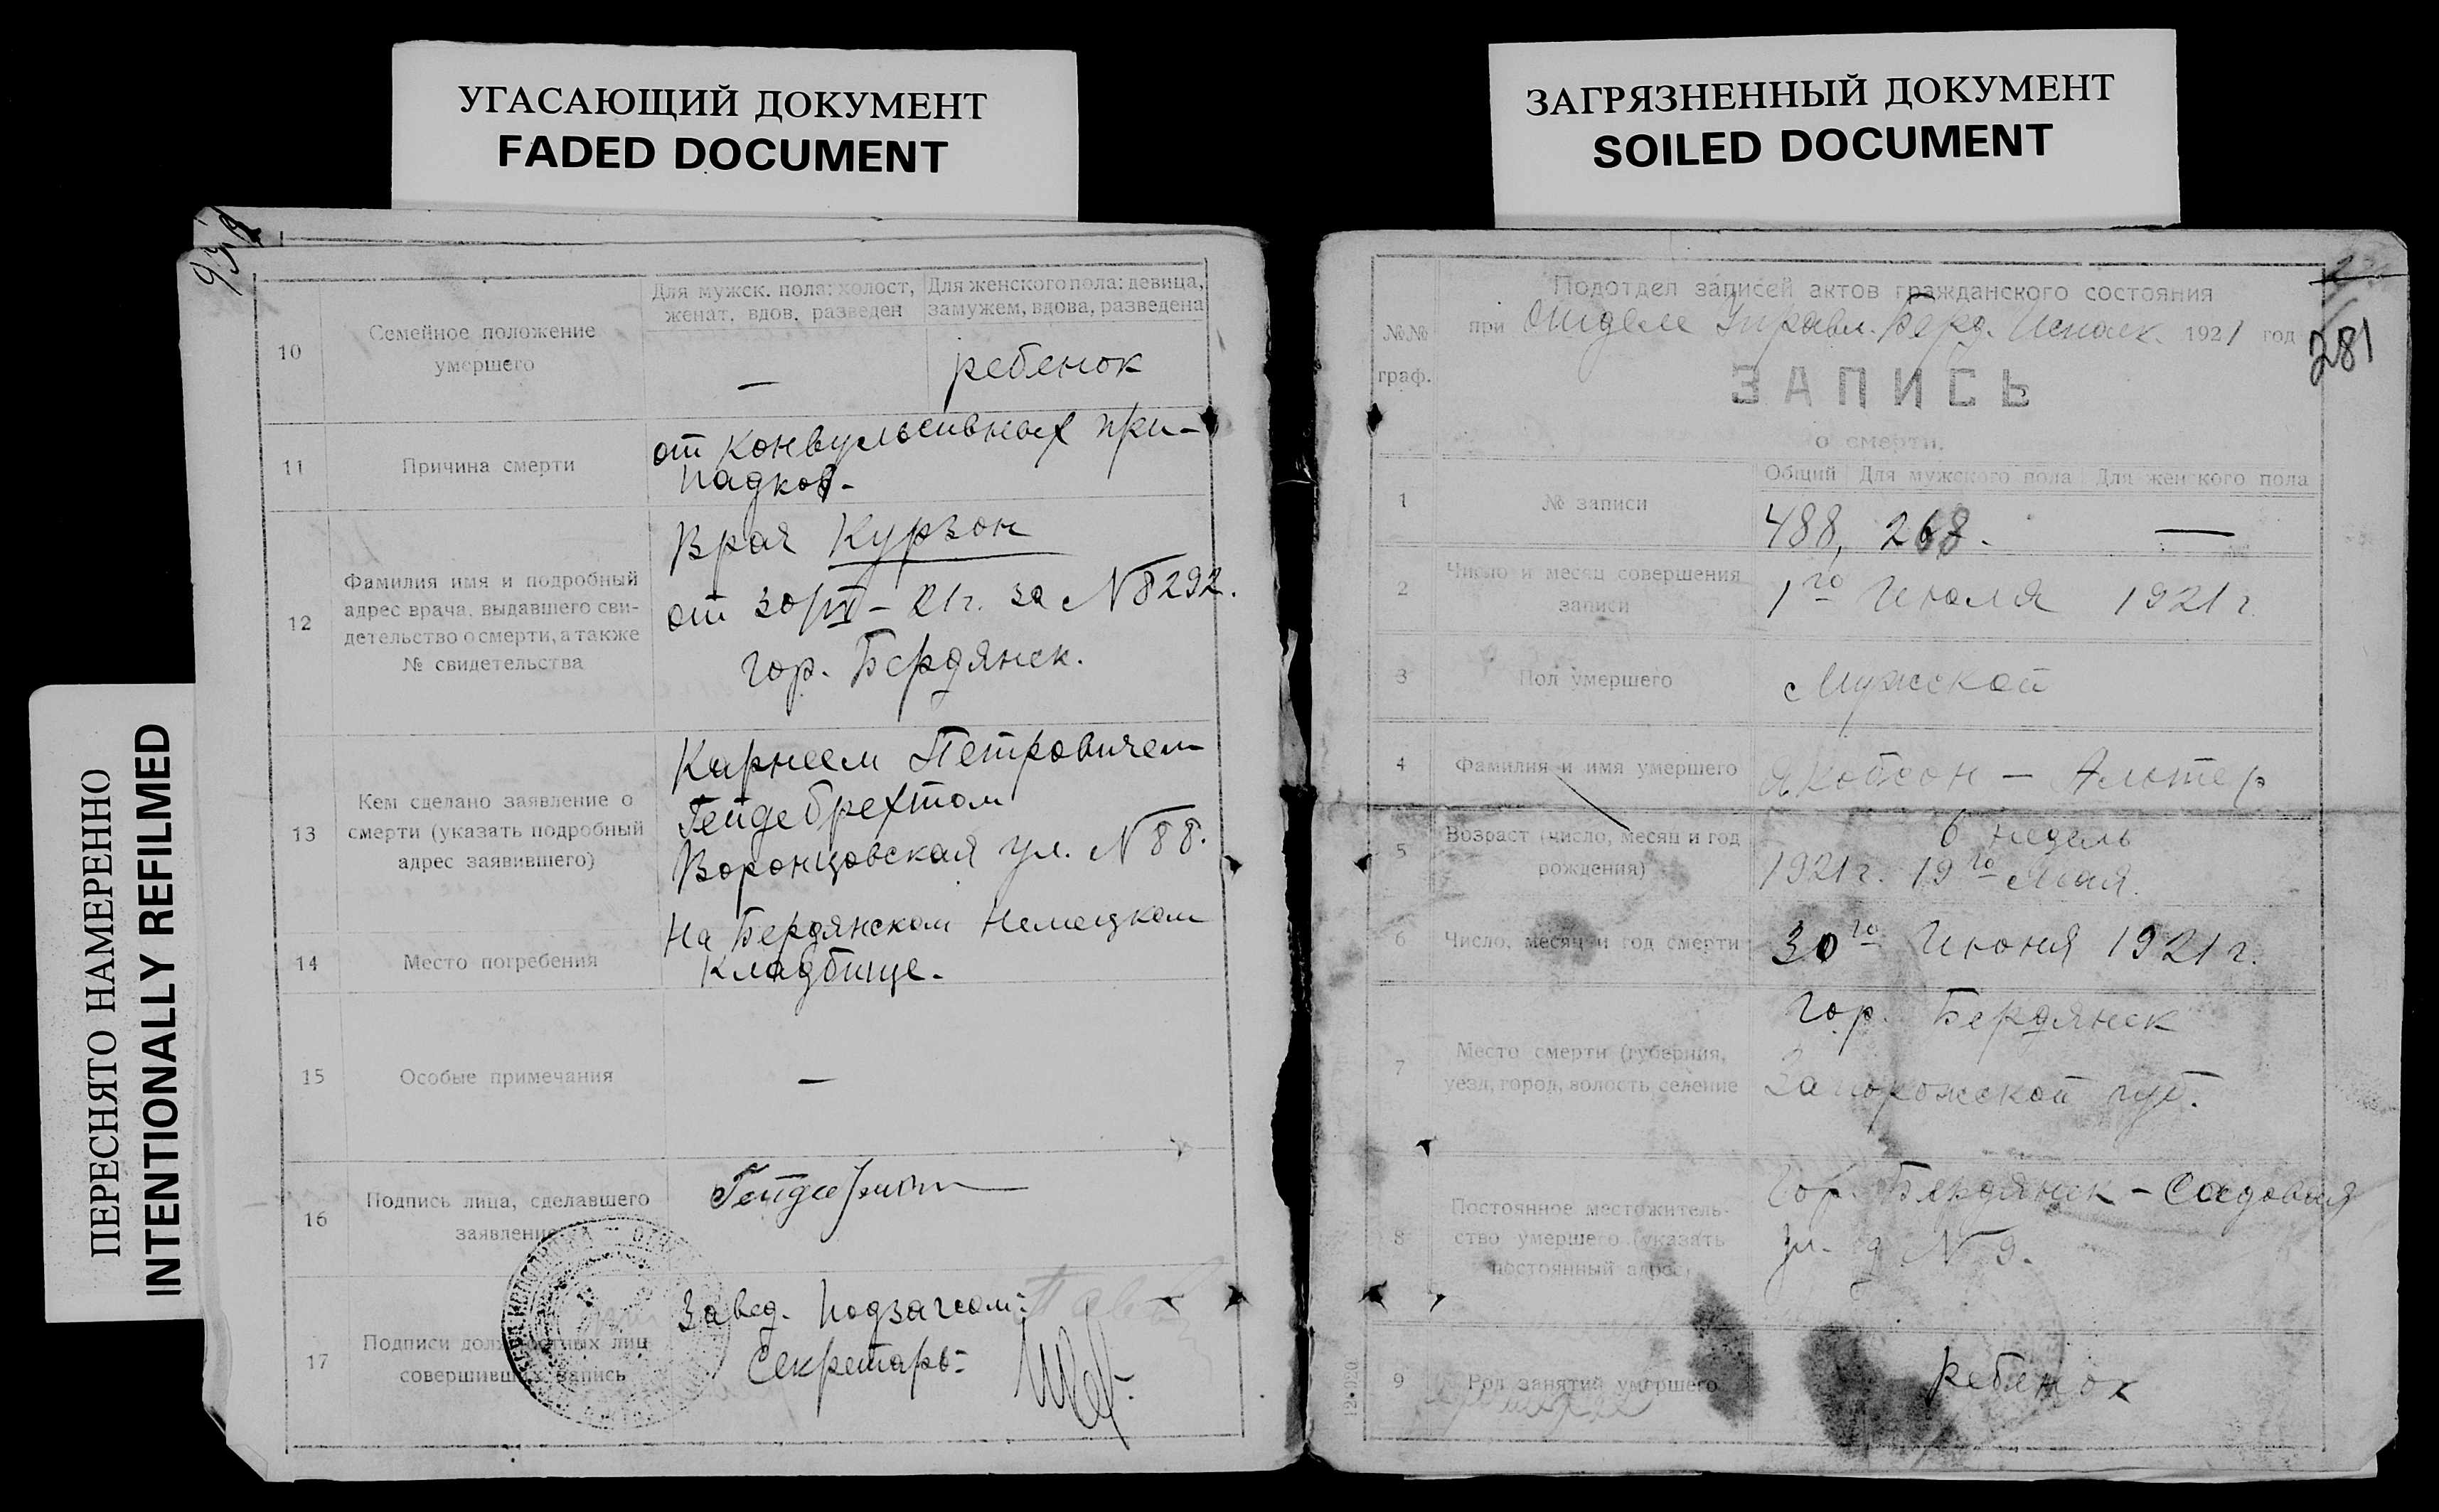 УГАСАЮЩИЙ ДОКУМЕНТ
FADED DOCUMENT
ЗАГРЯЗНЕННЫЙ ДОКУМЕНТ
SOILED DOCUMENT
ПЕРЕСНЯТО НАМЕРЕННО
INTENTIONALLY REFILMED
10
Семейное положение
умершего
Для мужск. пола: холост,
женат, вдов, разведен
—
Для женского пола: девица,
замужем, вдова, разведена
ребенок
11
Причина смерти
от конвульсивных при-
падков-
12
Фамилия имя и подробный
адрес врача, выдавшего сви-
детельство о смерти, а также
№ свидетельства
Врач Курзон
от 30/VI – 21 г. за № 8292.
гор. Бердянск.
13
Кем сделано заявление о
смерти (указать подробный
адрес заявившего)
Карнеем Петровичем
Гейдебрехтом
Воронцовская ул. № 88.
14
Место погребения
На Бердянском Немецком
кладбище.
15
Особые примечания
—
16
Подпись лица, сделавшего
заявление
17
Подписи должностных лиц
совершивших запись
Завед. Подзагсом:
Секретарь:
281
№№
граф.
Подотдел записей актов гражданского состояния
при Отделе Управл. Берд. Исполк. 1921 год
ЗАПИСЬ
о смерти.
1
№ записи
Общий Для мужского пола Для женского пола
488, 268. —
2
Число и месяц совершения
записи
1го Июля 1921 г.
3
Пол умершего
Мужской
4
Фамилия и имя умершего
Якобсон – Альтер
5
Возраст (число, месяц и год
рождения)
6 недель
1921 г. 19го Мая.
6
Число, месяц и год смерти
30го Июня 1921 г.
7
Место смерти (губерния,
уезд, город, волость селение
гор. Бердянск
Запорожской губ.
8
Постоянное местожитель-
ство умершего (указать
постоянный адрес)
Гор. Бердянск – Садовая
ул. д № 9.
9
Род занятий умершего
ребенок